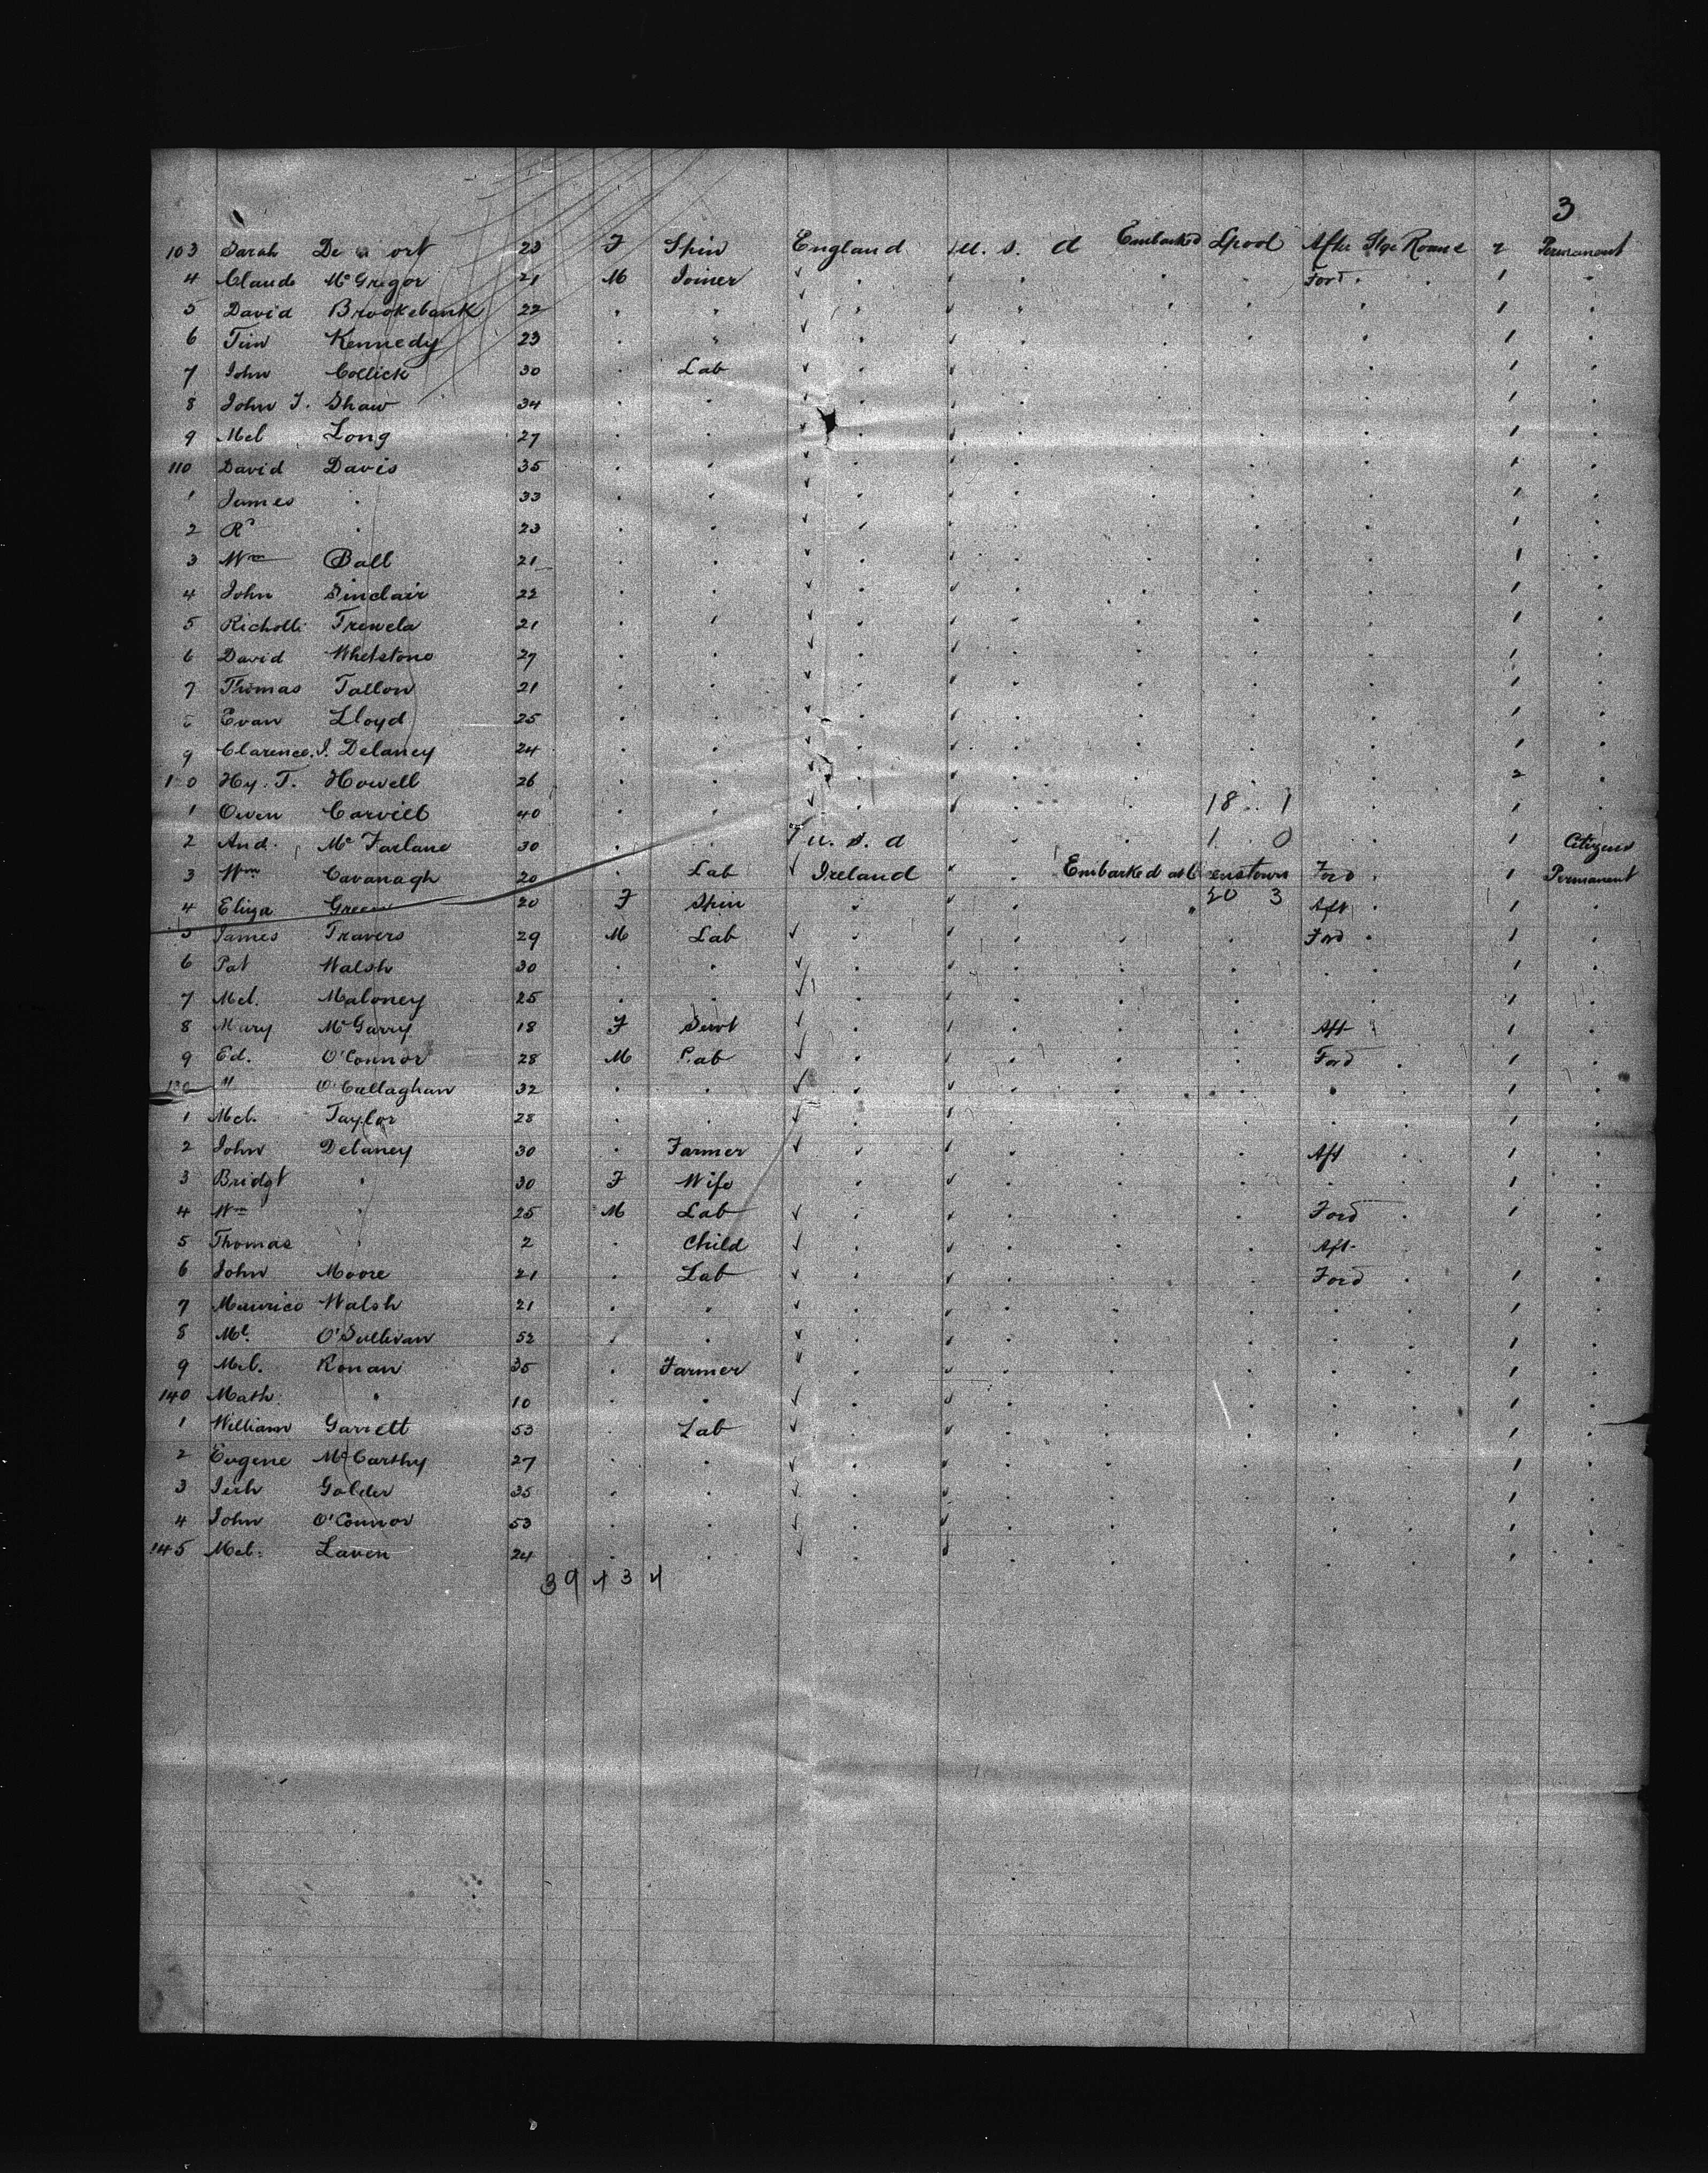 3
103 Sarah De ort 23 F Spin England U. S. a Embarked Lpool After Stge Round 2 Permanent
4 Claude McGregor 21 M Joiner ✓ . . . . Ford . 1 "
5 David Brookebank 22 . " ✓ . . . . . 1 .
6 Tim Kennedy 23 . " ✓ . . . . . 1 .
7 John Collick 30 . Lab ✓ . . . . . 1 .
8 John J. Shaw 34 . . ✓ . . . . . 1 .
9 Mcl Long 27 . . ✓ . . . . . 1 .
110 David Davis 35 . . ✓ . . . . . 1 .
1 James . 33 . . ✓ . . . . . 1 .
2 Rd . 23 . . ✓ . . . . . 1 .
3 Wm Ball 21 . . ✓ . . . . . 1 .
4 John Sinclair 22 . . ✓ . . . . . 1 .
5 Richolli Trewela 21 . . ✓ . . . . . 1 .
6 David Whetstone 27 . . ✓ . . . . . 1 .
7 Thomas Tallon 21 . . ✓ . . . . . 1 .
Evan Lloyd 25 . . ✓ . . . . . 1 .
9 Clarence J. Delaney 24 . . ✓ . . . . . 1 .
1 0 Hy. T. Howell 26 . . ✓ . . . . . 2 .
1 Owen Carvill 40 . . ✓ . . . 18 . 1 . 1 .
2 And. McFarlane 30 . . U. S. a . . 1 0 . 1 Citizen
3 Wm Cavanagh 20 . Lab ✓ Ireland . . Embarked at enstown Ford . 1 Permanent
4 Eliza Green 20 F Spin . . . " 20 3 Aft . 1 .
5 James Travers 29 M Lab ✓ . . . . . Ford . 1 .
6 Pat Walsh 30 . . ✓ . . . . . 1 .
7 Mcl. Maloney 25 . . ✓ . . . . . 1 .
8 Mary McGarry 18 F Servt ✓ . . . . Aft 1 .
9 Ed. O'Connor 28 M Lab ✓ . . . . Ford . 1 .
130 " O'Callaghan 32 . . ✓ . . . . . 1 .
1 Mcl. Taylor 28 . . ✓ . . . . . 1 .
2 John Delaney 30 . Farmer ✓ . . . . Aft . 1 .
3 Bridgt " 30 F Wife . . . . . 1 .
4 Wm " 25 M Lab ✓ . . . . Ford . 1 .
5 Thomas " 2 . Child ✓ . . . . Aft .
6 John Moore 21 . Lab ✓ . . . . Ford . 1 .
7 Maurice Walsh 21 . . ✓ . . . . . 1 .
8 Ml. O'Sullivan 52 . . ✓ . . . . . 1 .
9 Mcl. Ronan 35 . Farmer ✓ . . . . . 1 .
140 Math. " 10 . . ✓ . . . . . 1 .
1 William Garrett 53 . Lab ✓ . . . . . 1 .
2 Eugene McCarthy 27 . . ✓ . . . . . 1 .
3 Jerh Golden 35 . . ✓ . . . . . 1 .
4 John O'Connor 53 . . ✓ . . . . . 1 .
145 Mcl. Laven 24 . . ✓ . . . . . 1 .
39 + 3 4